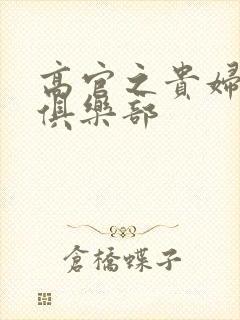 高官之貴婦
俱樂部
倉橋蝶子